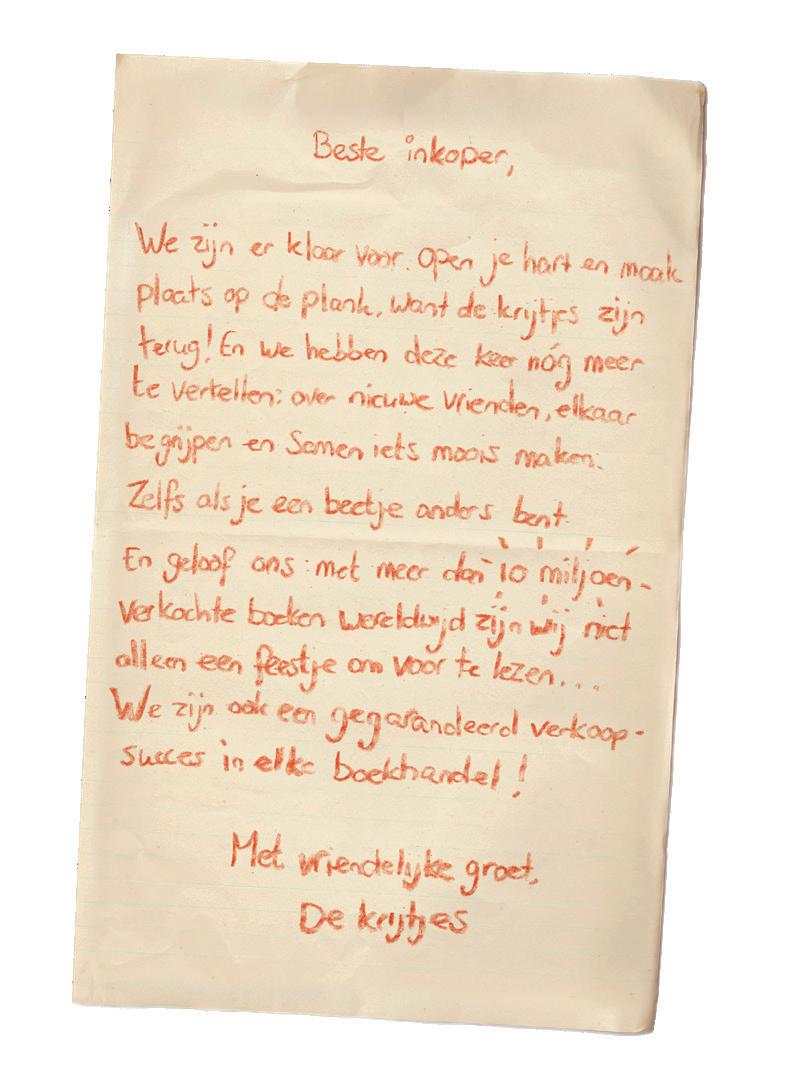 Beste inkoper,
We zijn er klaar voor. Open je hart en maak
plaats op de plank, want de krijtjes zijn
terug! En we hebben deze keer nóg meer
te vertellen: over nieuwe vrienden, elkaar
begrijpen en samen iets moois maken.
Zelfs als je een beetje anders bent.
En geloof ons: met meer dan 10 miljoen
verkochte boeken wereldwijd zijn wij niet
alleen een feestje om voor te lezen...
We zijn ook een gegarandeerd verkoop-
succes in elke boekhandel!
Met vriendelijke groet,
De krijtjes